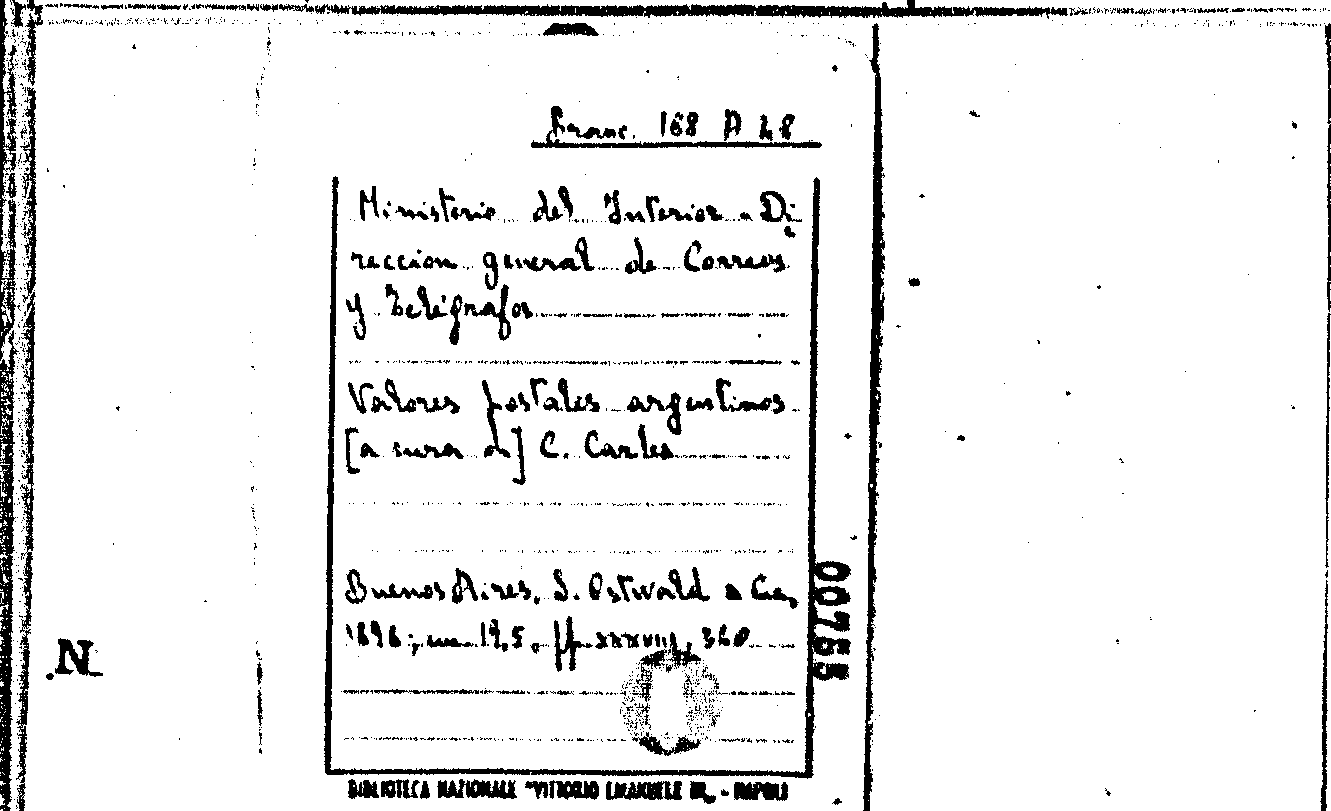 Branc. 168 A 48
Ministerio del Interior - Di-
reccion general de Correos
y Telégrafos
Valores postales argentinos
[a cura di] C. Carles
Buenos Aires, S. Ostwald a Cia,
1896; cm. 19,5, pp. XXXVIII, 360
00755
N
BIBLIOTECA NAZIONALE "VITTORIO EMANUELE III" - NAPOLI